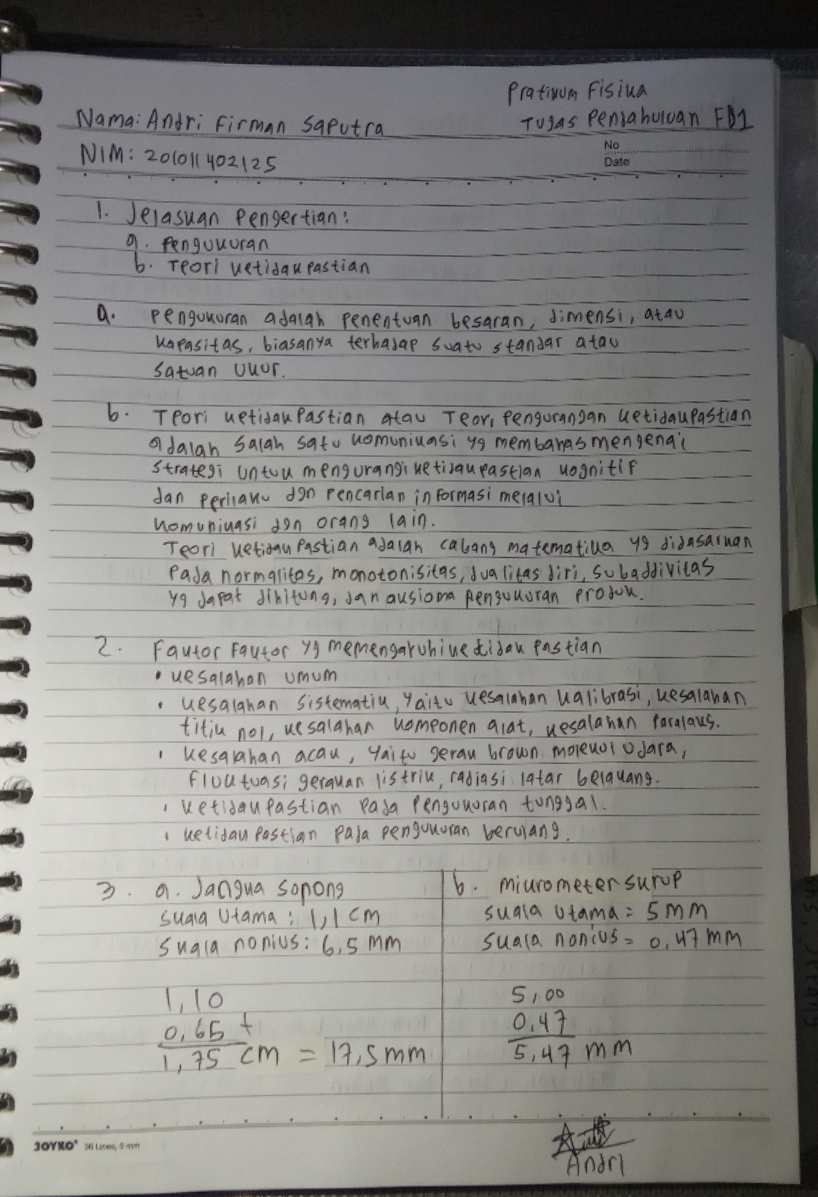 Pratikum Fisika
Nama: Andri Firman Saputra
Tugas Pendahuluan FD1
NIM: 201011402125
No
Date
1. Jelaskan Pengertian:
a. Pengukuran
b. Teori ketidakpastian
a. Pengukuran adalah penentuan besaran, dimensi, atau
kapasitas, biasanya terhadap suatu standar atau
satuan ukur.
b. Teori ketidakpastian atau Teori pengurangan ketidakpastian
adalah salah satu komunikasi yg membahas mengenai
strategi untuk mengurangi ketidakpastian kognitif
dan perilaku dgn pencarian informasi melalui
komunikasi dgn orang lain.
Teori ketidakpastian adalah cabang matematika yg didasarkan
pada normalitas, monotonisitas, dualitas diri, subaddivitas
yg dapat dihitung, dan aksioma pengukuran produk.
2. Faktor Faktor yg memengaruhi ketidakpastian
• kesalahan umum
• kesalahan sistematik, yaitu kesalahan kalibrasi, kesalahan
titik nol, kesalahan komponen alat, kesalahan paralaks.
• kesalahan acak, yaitu gerak brown molekul udara,
fluktuasi gerakan listrik, radiasi latar belakang.
• ketidakpastian pada pengukuran tunggal.
• ketidakpastian pada pengukuran berulang.
3. a. Jangka sopong
skala utama: 1,1 cm
skala nonius: 6,5 mm
1,10
0,65 +
1,75 cm = 17,5 mm
b. mikrometer skrup
skala utama = 5 mm
skala nonius = 0,47 mm
5,00
0,47
5,47 mm
JOYKO 36 Lines, 8 mm
Andri